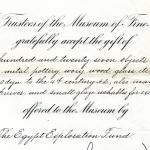 Trustees of the Museum of Fine
gratefully accept the gift of
hundred and twenty seven objects
metal pottery ivory wood glass
to the 4th century
and small glaze
offered to the Museum by
The Egypt Exploration Fund